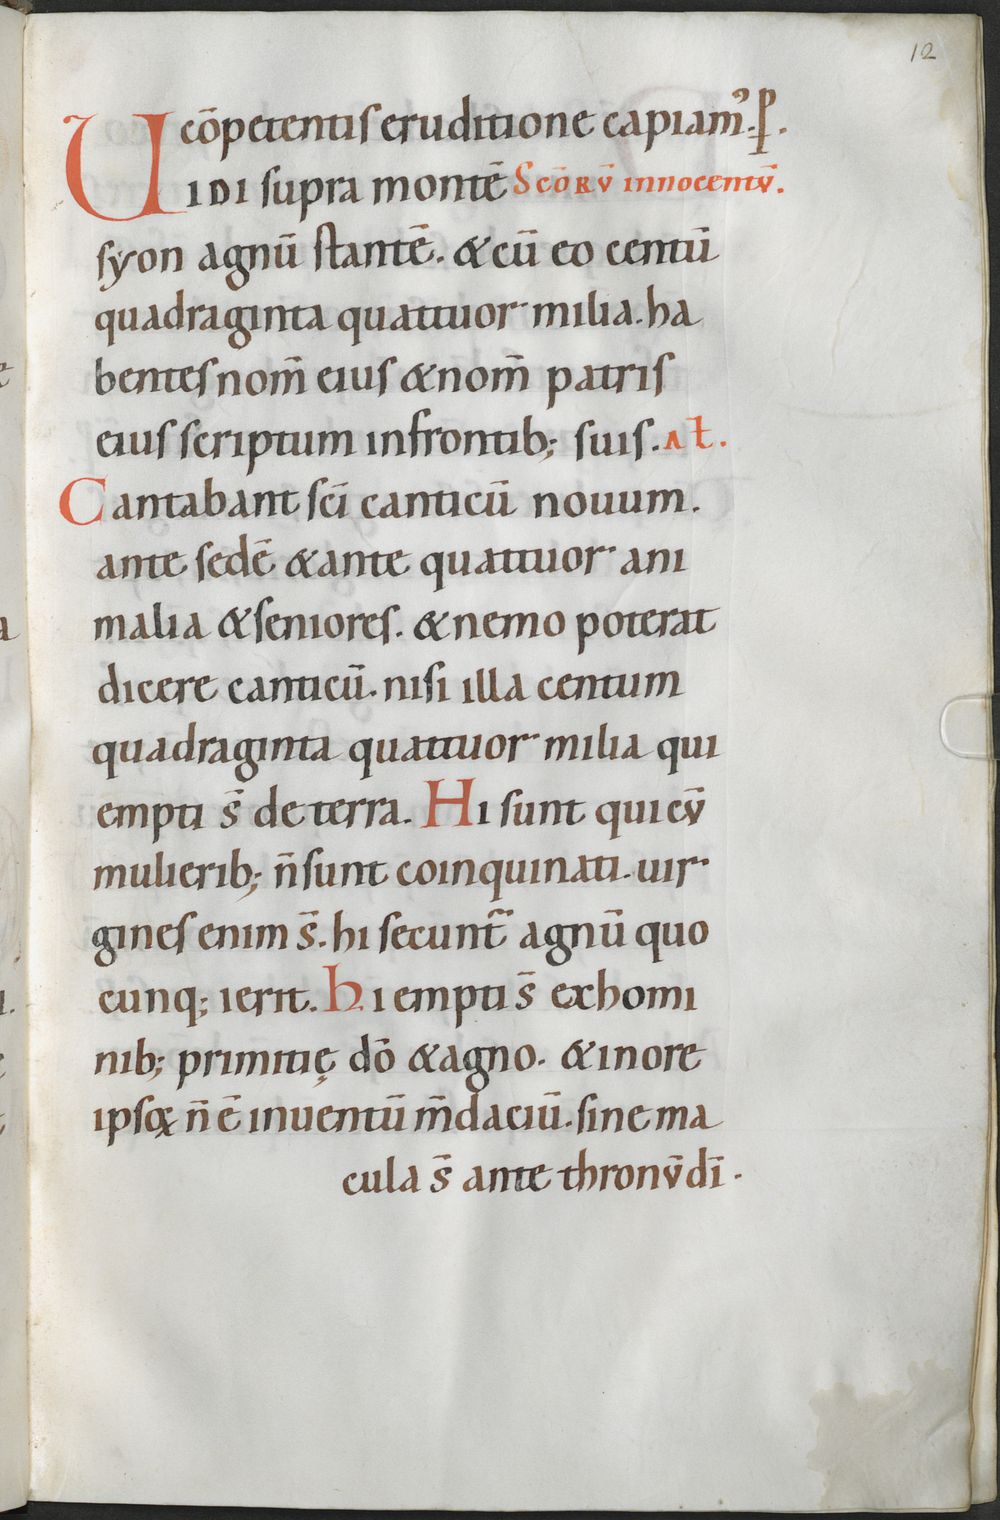 12
cōpetentis eruditione capiamꝰ. P̱.
UIDI supra montē Scōrū innocentū.
syon agnū stantē. & cū eo centū
quadraginta quattuor milia. ha
bentes nom̄ eius & nom̄ patris
eius scriptum in frontib; suis. Al̄t.
Cantabant sc̄i canticū nouum.
ante sedē & ante quattuor ani
malia & seniores. & nemo poterat
dicere canticū. nisi illa centum
quadraginta quattuor milia qui
empti s̄ de terra. Hi sunt qui cū
mulierib; n̄ sunt coinquinati. uir
gines enim s̄. hi secunt̄ agnū quo
cunq; ierit. hi empti s̄ ex homi
nib; primitię dō & agno. & in ore
ipsoꝝ n̄ ē inuentū m̄daciū. sine ma
cula s̄ ante thronū dī.